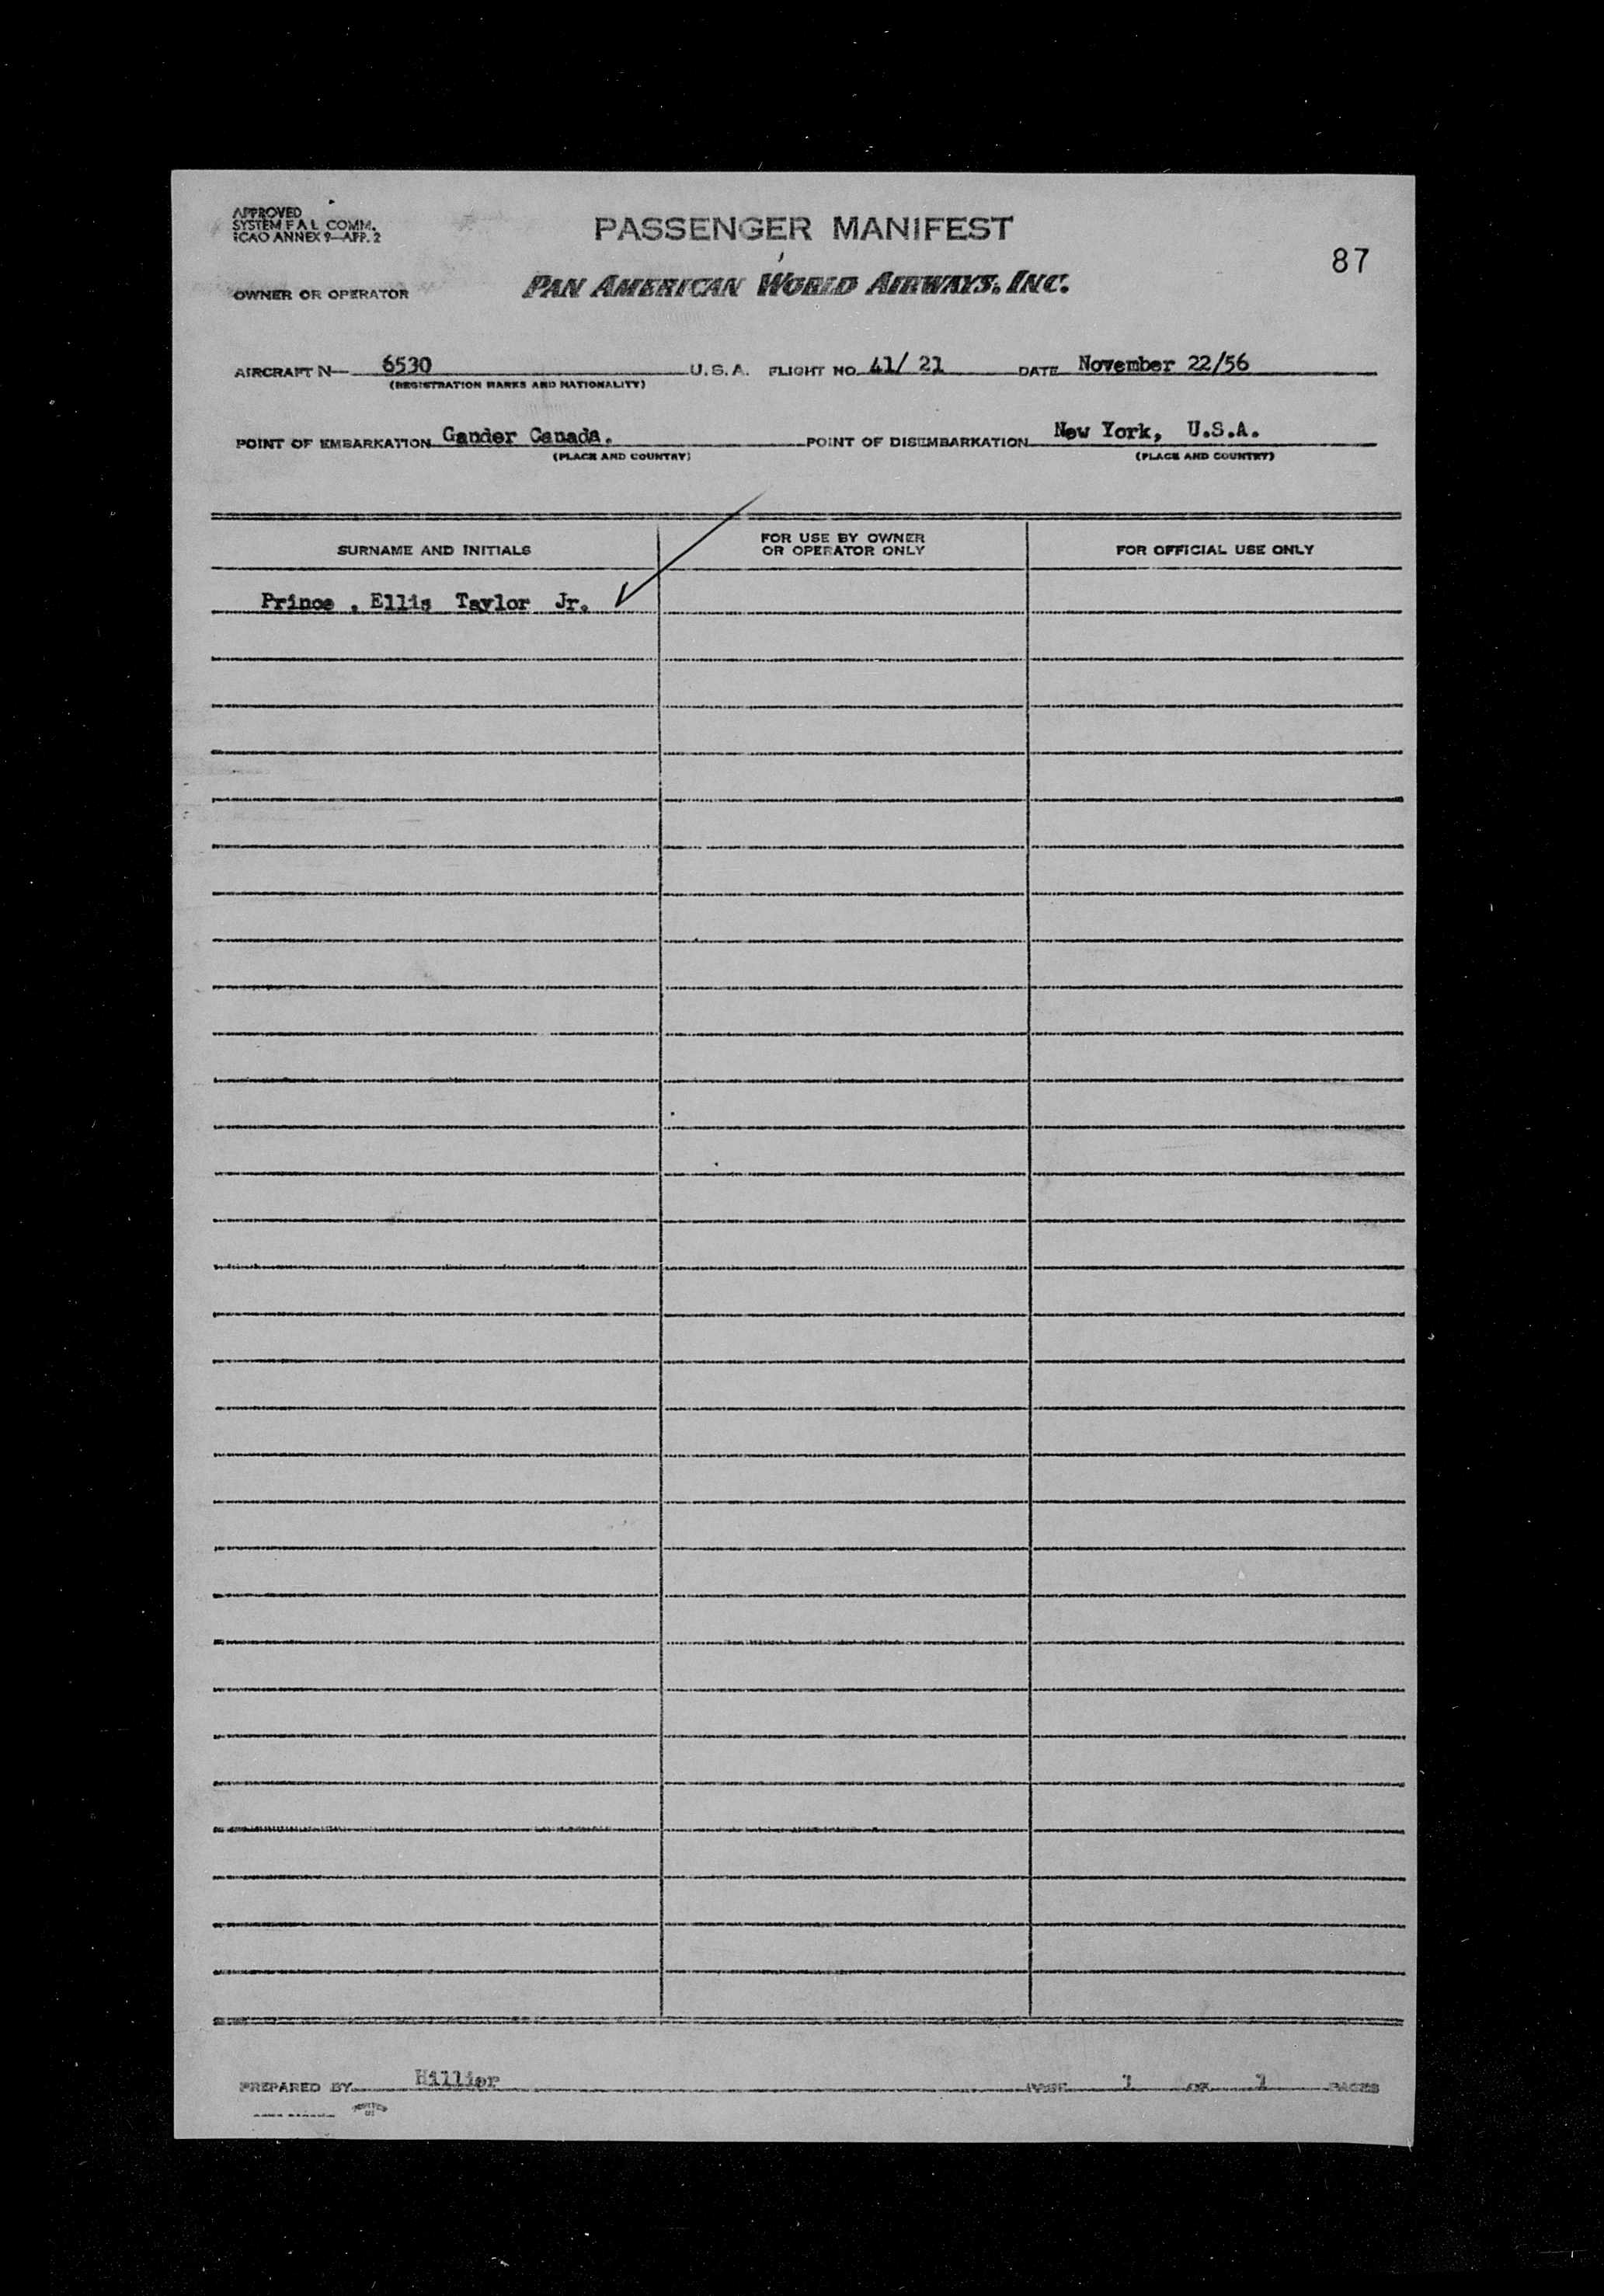 APPROVED
SYSTEM F A L COMM.
ICAO ANNEX 9—APP. 2
PASSENGER MANIFEST
87
OWNER OR OPERATOR
PAN AMERICAN WORLD AIRWAYS, INC.
AIRCRAFT N— 6530 U.S.A. FLIGHT NO. 41/ 21 DATE November 22/56
(REGISTRATION MARKS AND NATIONALITY)
POINT OF EMBARKATION Gander Canada. POINT OF DISEMBARKATION New York, U.S.A.
(PLACE AND COUNTRY) (PLACE AND COUNTRY)
SURNAME AND INITIALS
FOR USE BY OWNER
OR OPERATOR ONLY
FOR OFFICIAL USE ONLY
Prince , Ellis Taylor Jr.
PREPARED BY Hillier PAGE 1 OF 1 PAGES